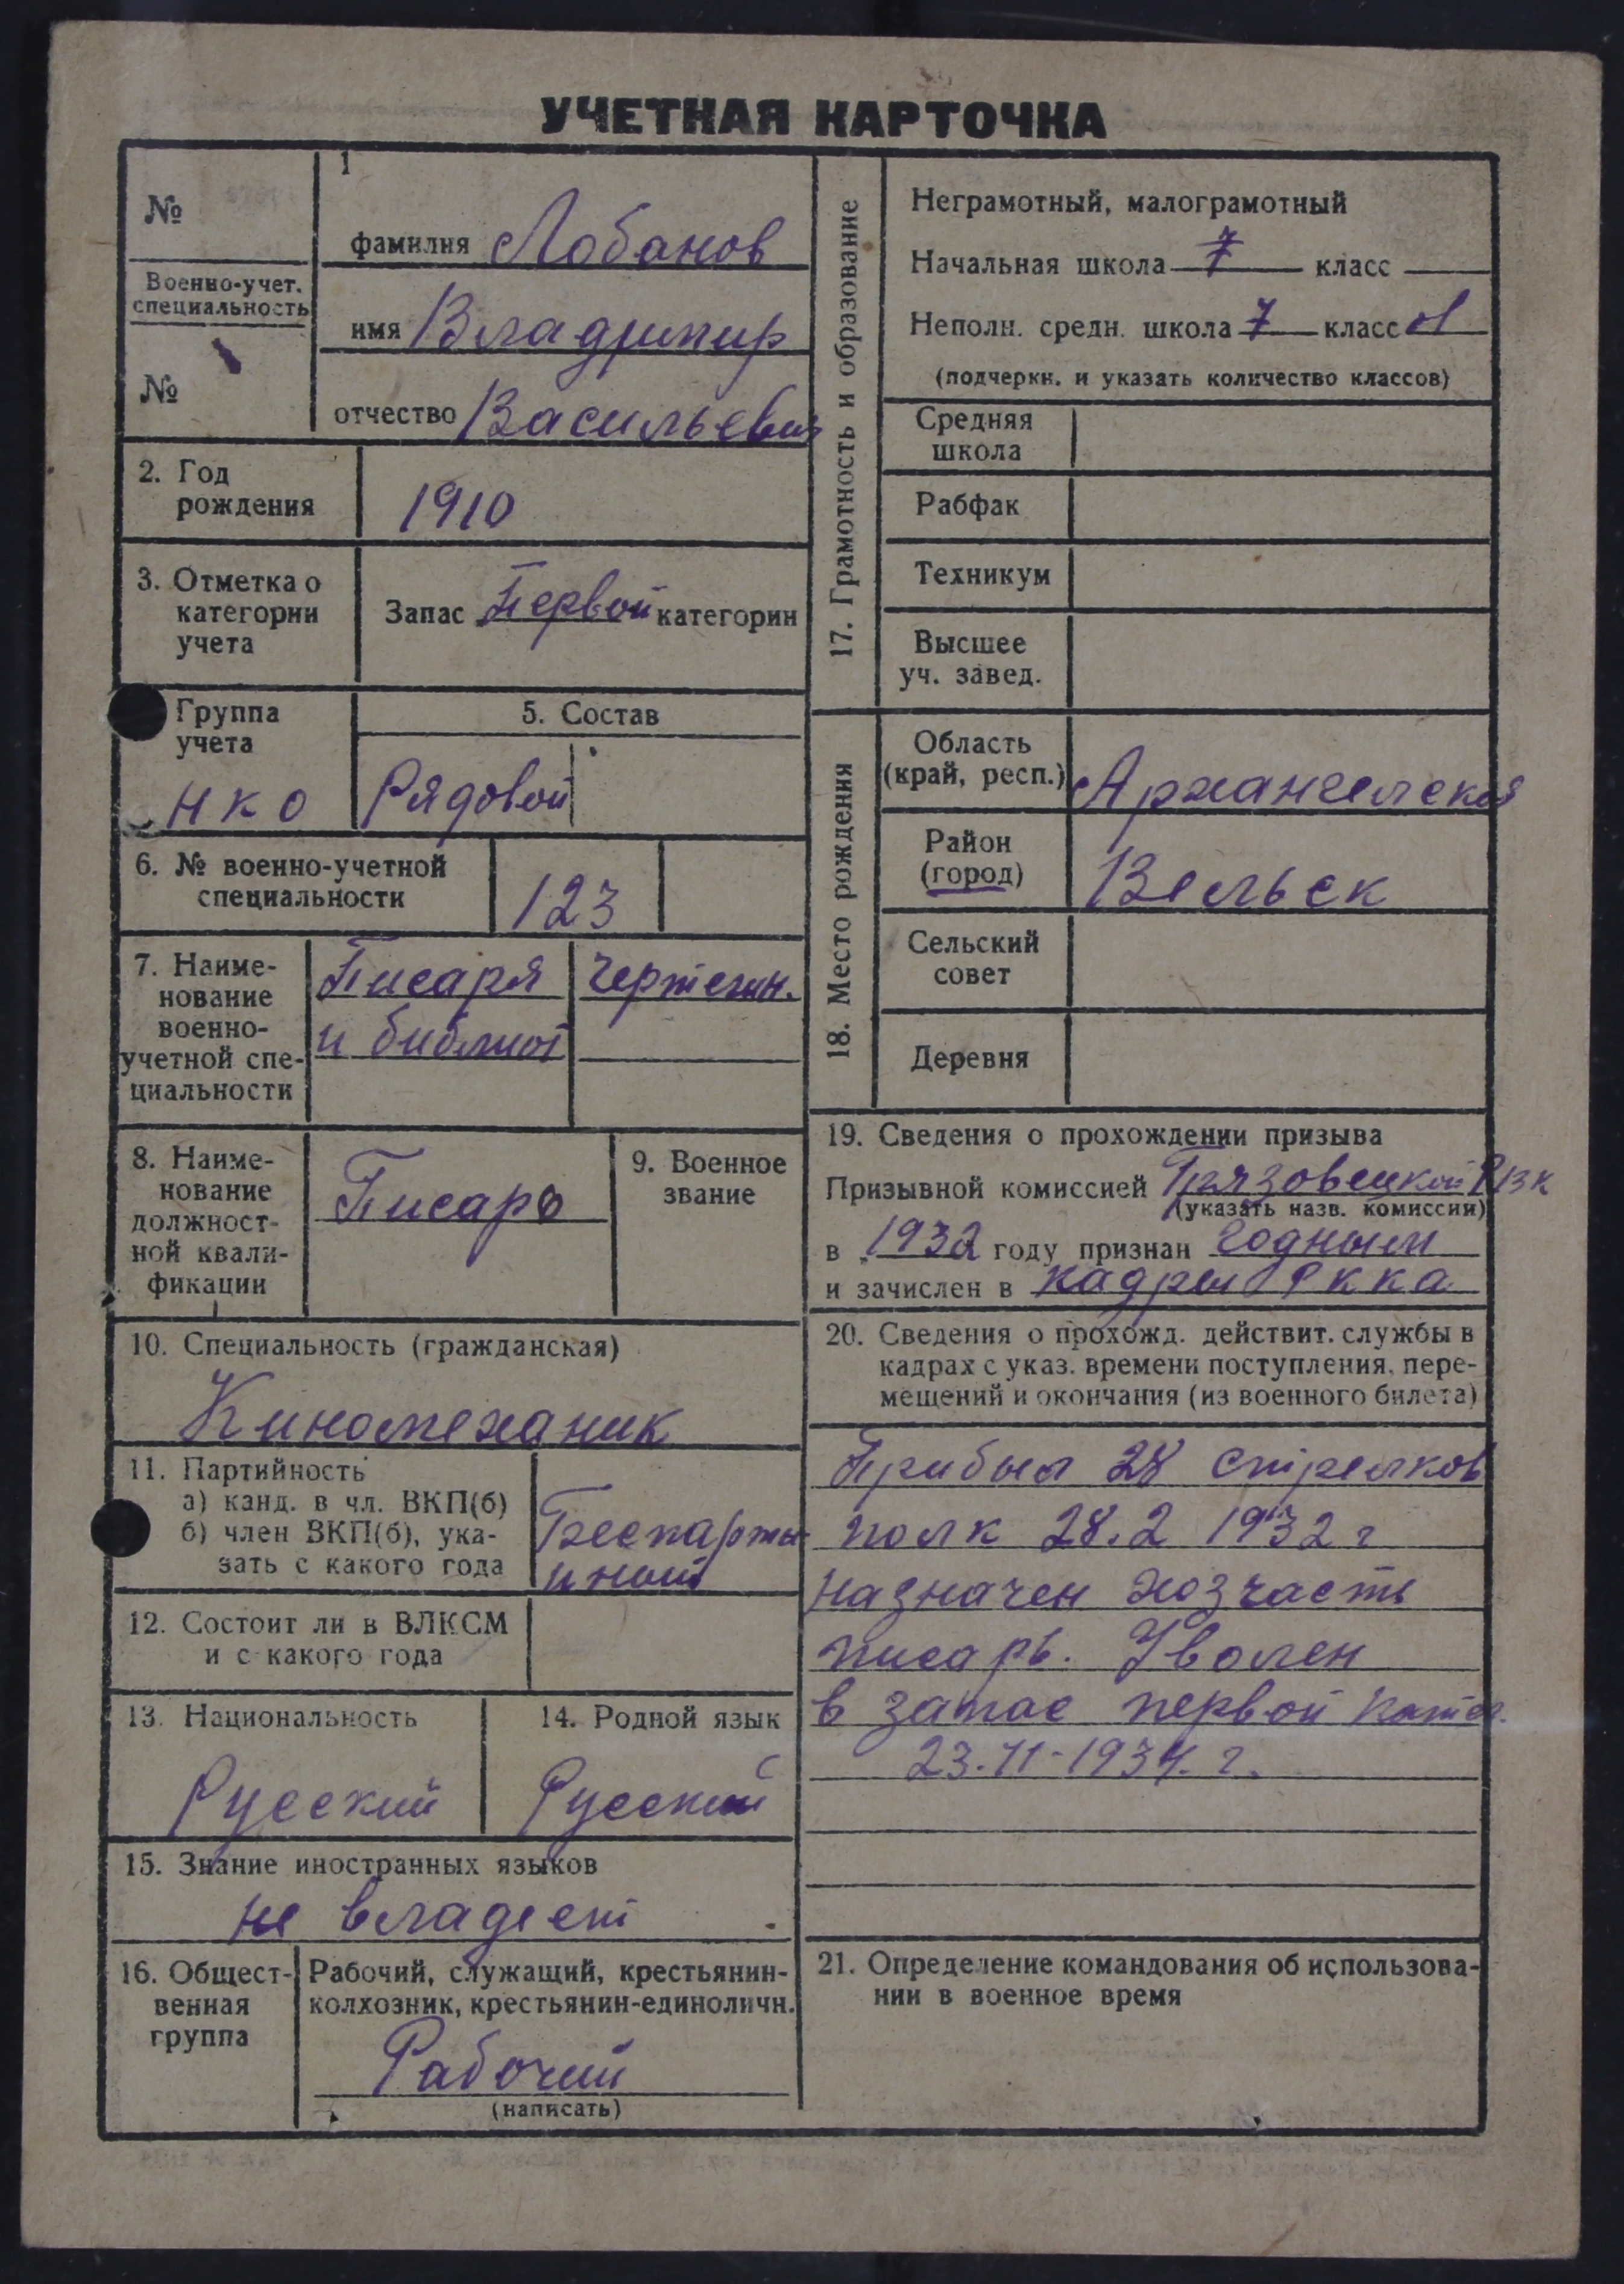 УЧЕТНАЯ КАРТОЧКА
№
Военно-учет.
специальность
№
1
фамилия Лобанов
имя Владимир
отчество Васильевич
2. Год
рождения
1910
3. Отметка о
категории
учета
Запас Первой категории
Группа
учета
НКО
5. Состав
Рядовой
6. № военно-учетной
специальности
123
7. Наиме-
нование
военно-
учетной спе-
циальности
Писаря
и библиот
чертежн.
8. Наиме-
нование
должност-
ной квали-
фикации
Писарь
9. Военное
звание
10. Специальность (гражданская)
Киномеханик
11. Партийность
а) канд. в чл. ВКП(б)
б) член ВКП(б), ука-
зать с какого года
Беспарти
иной
12. Состоит ли в ВЛКСМ
и с какого года
13. Национальность
Русский
14. Родной язык
Русский
15. Знание иностранных языков
не владеет
16. Общест-
венная
группа
Рабочий, служащий, крестьянин-
колхозник, крестьянин-единоличн.
Рабочий
(написать)
17. Грамотность и образование
Неграмотный, малограмотный
Начальная школа 7 класс
Неполн. средн. школа 7 класс
(подчеркн. и указать количество классов)
Средняя
школа
Рабфак
Техникум
Высшее
уч. завед.
18. Место рождения
Область
(край, респ.)
Архангельская
Район
(город)
Вельск
Сельский
совет
Деревня
19. Сведения о прохождении призыва
Призывной комиссией Грязовецкой РВК
(указать назв. комиссии)
в 1932 году признан годным
и зачислен в кадры РККА
20. Сведения о прохожд. действит. службы в
кадрах с указ. времени поступления, пере-
мещений и окончания (из военного билета)
Прибыл 28 стрелков
полк 28.2 1932 г
назначен хозчасть
писарь. Уволен
в запас первой катег.
23.11-1934. г.
21. Определение командования об использова-
нии в военное время